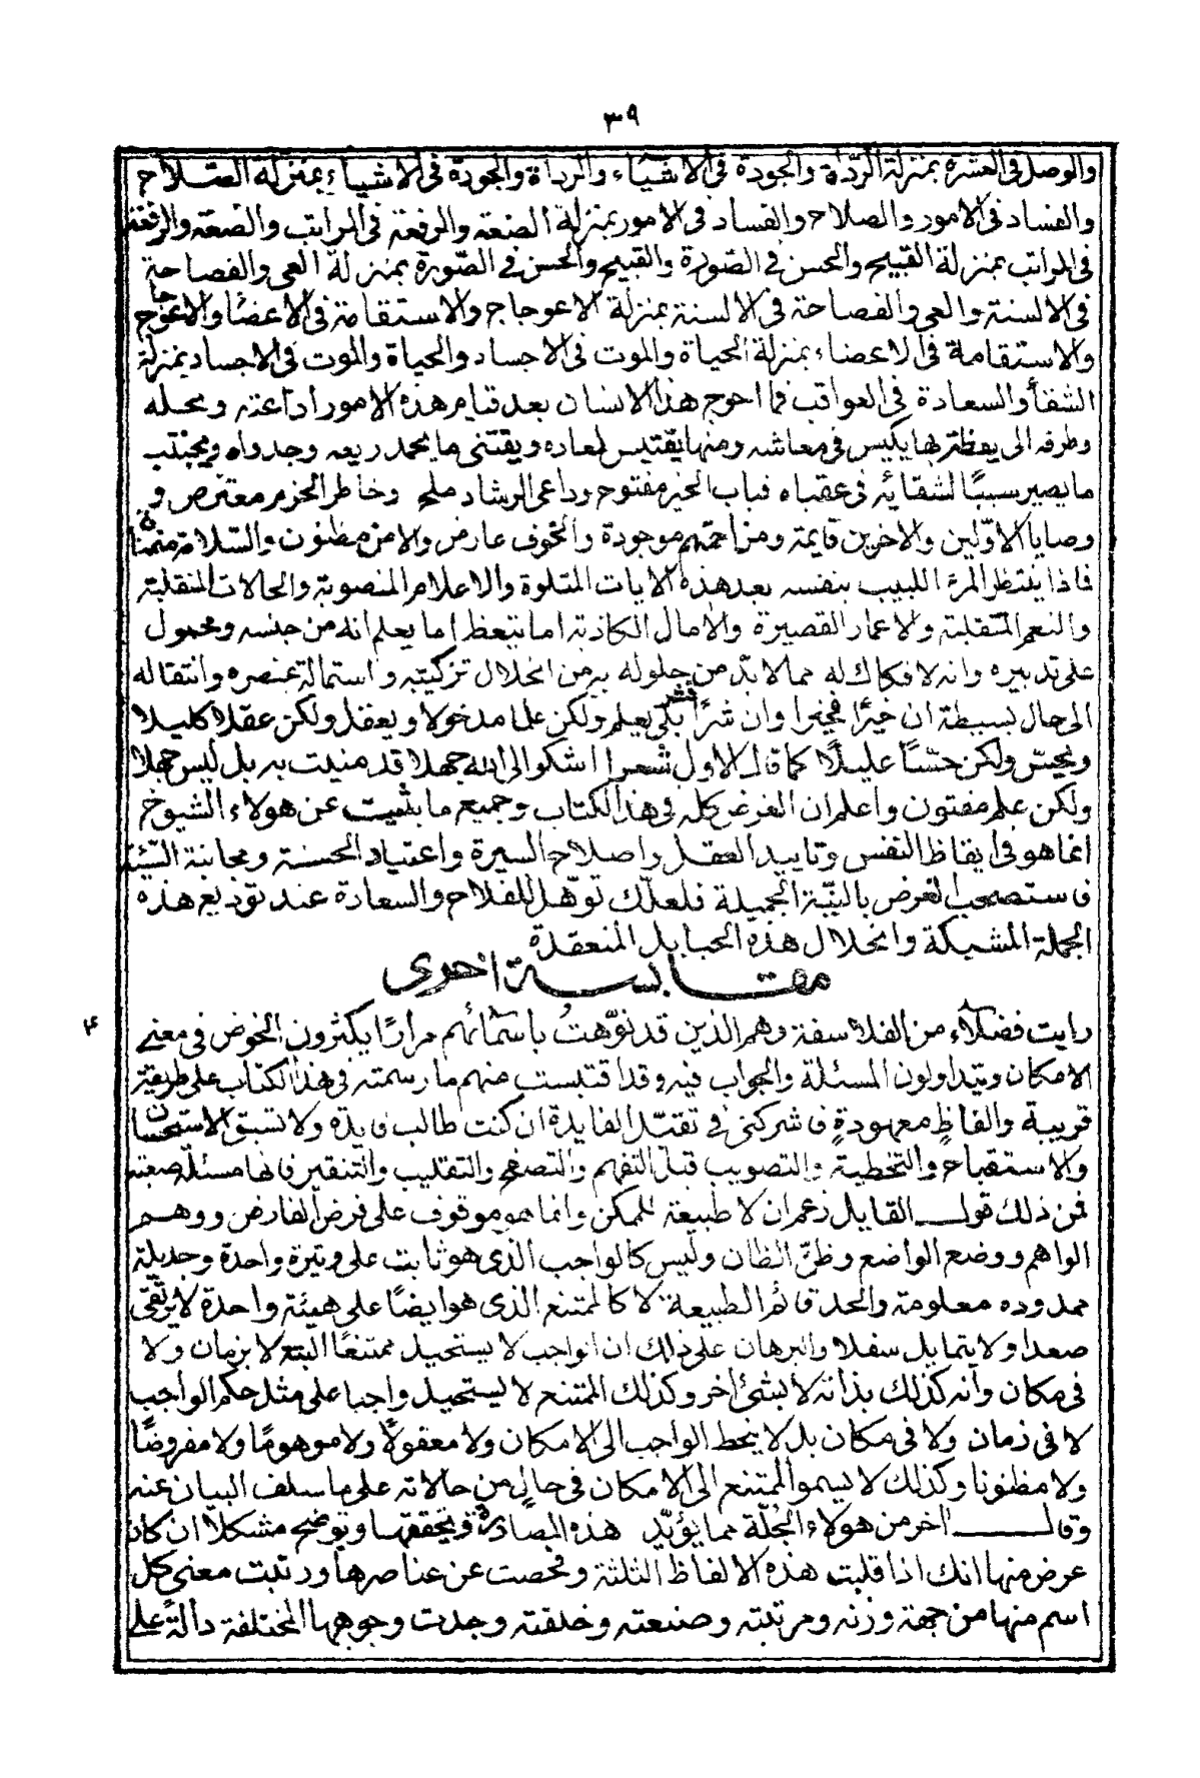 ٣٩
والوصل فى العشرة بمنزلة الرداة والجودة فى الاشياء والرداة والجودة فى الاشياء بمنزلة الصلاح
والفساد فى الامور والصلاح والفساد فى الامور بمنزلة الضعة والرفعة فى المراتب والضعة والرفعة
فى المراتب بمنزلة القبيح والحسن فى الصورة والقبيح والحسن فى الصورة بمنزلة العى والفصاحة
فى الالسنة والعى والفصاحة فى الالسنة بمنزلة الاعوجاج والاستقامة فى الاعضا والاعوجاج
والاستقامة فى الاعضاء بمنزلة الحياة والموت فى الاجساد والحياة والموت فى الاجساد بمنزلة
الشفأ والسعادة فى العواقب فما احوج هذا الانسان بعد قيام هذه الامور اداعته ومحله
وطرفه الى يقظة بها يكيس فى معاشه ومنها يقتبس لمعاده ويقتنى ما يحمد ريعه وجدواه ويجتنب
ما يصير سببًا لشقائه فى عقباه فباب الخير مفتوح وداعى الرشاد ملح وخاطر الحزم معترض و
وصايا الاوّلين والاخرين قايمة ومزاحمتهم موجودة والخوف عارض والامن مظنون والسّلامة متمناة
فاذا ينتظر المرء اللبيب بنفسه بعد هذه الايات المتلوة والاعلام المنصوبة والحالات المنقلبة
والنعم المتقلبة والاعمار القصيرة والامال الكاذبة اما يتعظ اما يعلم انه من جنسه ومحمول
على تدبيره وانه لا فكاك له مما لا بدّ من حلوله به من انحلال تركيبه واستمالة عنصره وانتقاله
الى حال بسيطة ان خيرًا فخيرا وان شرًا فشر بلى يعلم ولكن علما مدخولا ويعقل ولكن عقلا كليلا
ويحسّ ولكن حسّا عليلًا كما قال الاول شعر اشكو الى الله جهلا قد منيت به بل ليس جهلا
ولكن علم مفتون واعلم ان الغرض كله فى هذا الكتاب وجميع ما يثبت عن هولاء الشيوخ
انما هو فى ايقاظ النفس وتاييد العقل واصلاح السيرة واعتياد الحسنة ومجانبة السّيئة
فاستصحب الغرض بالنيّة الجميلة فلعلك توّهل للفلاح والسعادة عند توديع هذه
الجملة المشبكة وانحلال هذه الحبايل المنعقدة
مقابسة اخرى
رايت فضلاء من الفلاسفة وهم الذين قد نوّهتُ باسمائهم مرارًا يكثرون الخوض فى معنى
الامكان ويتداولون المسئلة والجواب فيه وقد اقتبست منهم ما رسمته فى هذا الكتاب على طريقة
قريبة والفاظٍ معهودةٍ فاشركنى فى تقبّل الفايدة ان كنت طالب فايدة ولا تسبق الاستحسان
والاستقباح والتخطية والتصويب قبل التفهم والتصفح والتقليب والتنقير فانها مسئلة صعبة
فمن ذلك قول القايل زعم ان لا طبيعة للممكن وانما هو موقوف على فرض الفارض ووهم
الواهم ووضع الواضع وظنّ الظان وليس كالواجب الذى هو ثابت على وتيرة واحدة وجديلة
ممدوده معلومة والحد قائم الطبيعة لا كالممتنع الذى هو ايضًا على هيئة واحدة لا يرتقى
صعدا ولا يتمايل سفلا والبرهان على ذلك ان الواجب لا يستحيل ممتنعًا البتة لا بزمان ولا
فى مكان وانه كذلك بذاته لا بشئ اخر وكذلك الممتنع لا يستحيل واجبا على مثل حكم الواجب
لا فى زمان ولا فى مكان بل لا ينحط الواجب الى الامكان ولا معقولًا ولا موهومًا ولا مفروضًا
ولا مظنونا وكذلك لا يسمو الممتنع الى الامكان فى حالٍ من حالاته على ما سلف البيان عنه
وقال اخر من هولاء الجلّة مما يؤيّد هذه المصادرة ويحققها ويوضح مشكلًا ان كان
عرض منها انك اذا قلبت هذه الالفاظ الثلثة وفحصت عن عناصرها ورتبت معنى كل
اسم منها من جهة وزنه ومرتبته وصنيعته وخلقته وجدت وجوهها المختلفة دالةً على